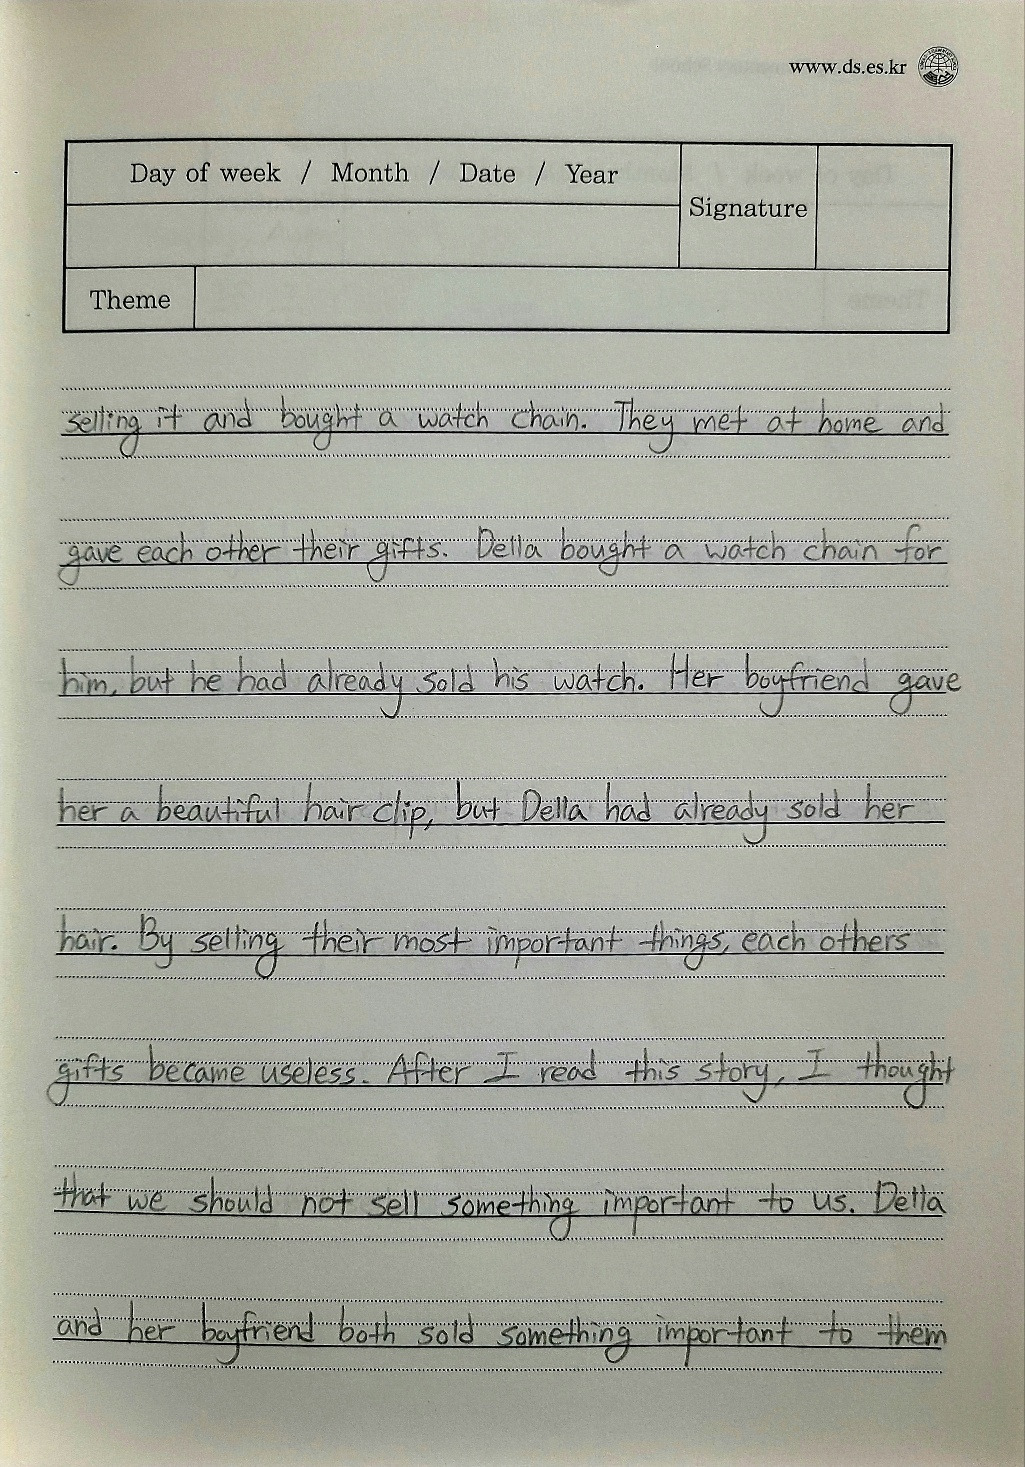 www.ds.es.kr
Day of week / Month / Date / Year
Signature
Theme
selling it and bought a watch chain. They met at home and
gave each other their gifts. Della bought a watch chain for
him, but he had already sold his watch. Her boyfriend gave
her a beautiful hair clip, but Della had already sold her
hair. By selling their most important things, each others
gifts became useless. After I read this story, I thought
that we should not sell something important to us. Della
and her boyfriend both sold something important to them